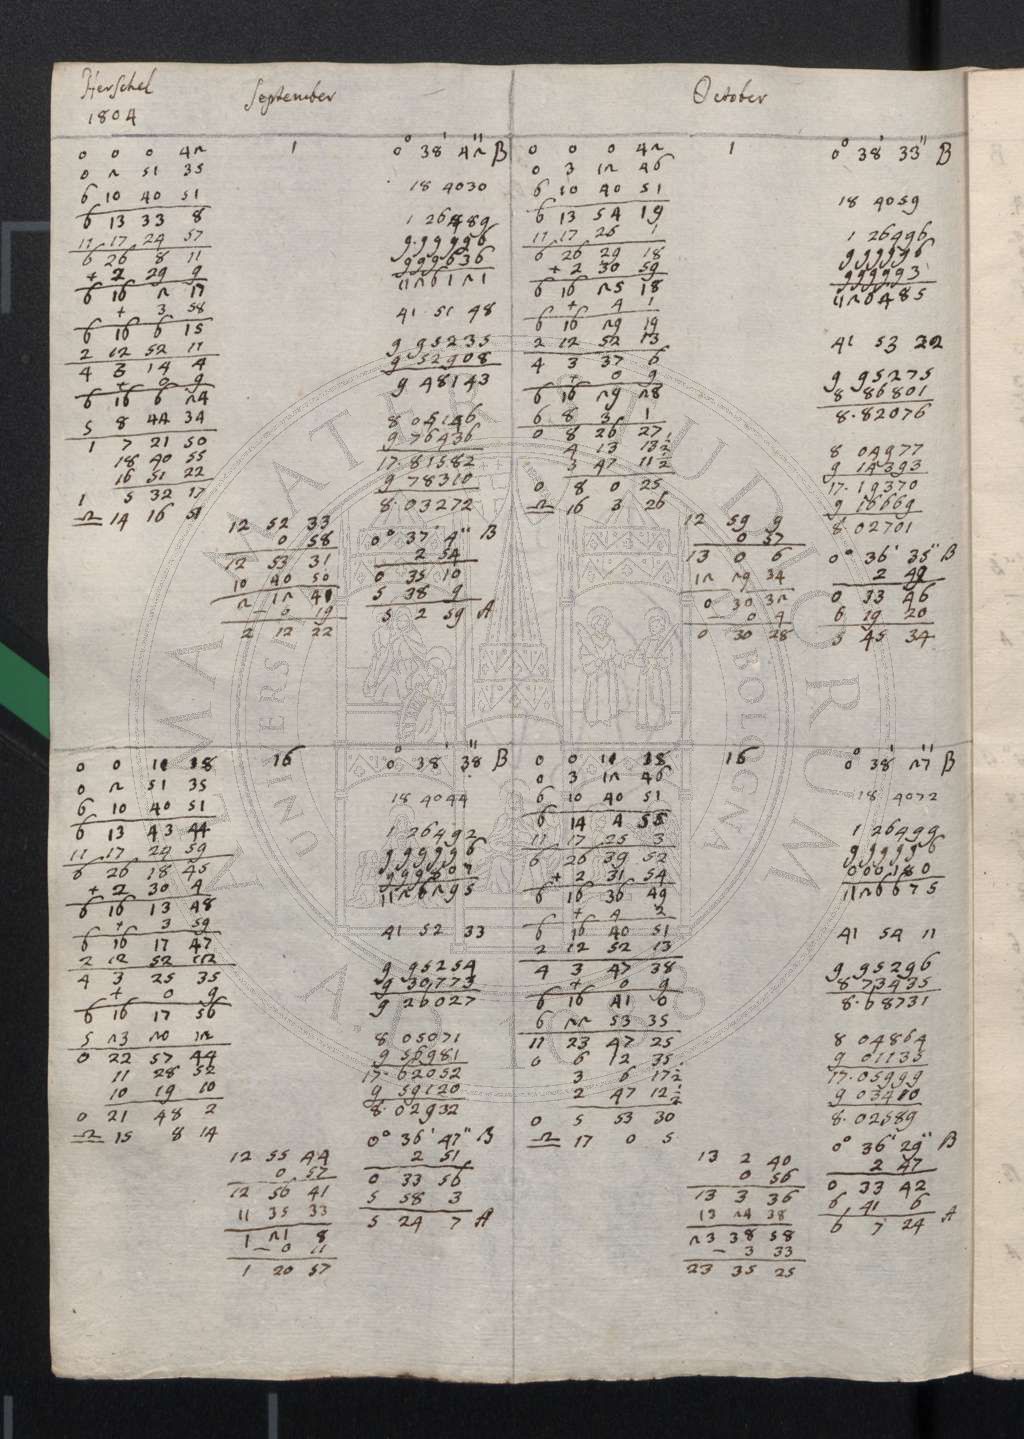 Herschel
1804
September
October
0 0 0 42
0 2 51 35
6 10 40 51
6 13 33 8
11 17 24 57
6 26 8 11
+ 2 29 9
6 16 2 17
+ 3 58
6 16 6 15
2 12 52 11
4 3 14 4
+ 0 9
6 16 6 24
5 8 44 34
1 7 21 50
18 40 55
16 51 22
1 5 32 17
♎ 14 16 51
1
12 52 33
0 58
12 53 31
10 40 50
2 12 41
− 0 19
2 12 22
0° 38' 42" B
18 4030
1 26489
9.99996
999636
1126121
41 51 48
9 95235
9 52908
9 48143
8 05146
9 76436
17.81582
9 78310
8.03272
0° 37' 4" B
2 54
0 35 10
5 38 9
5 2 59 A
0 0 0 42
0 3 12 46
6 10 40 51
6 13 54 19
11 17 25 1
6 26 29 18
+ 2 30 59
6 16 25 18
+ 4 1
6 16 29 19
2 12 52 13
4 3 37 6
+ 0 9
6 16 29 28
6 8 3 1
0 8 26 27
4 13 13½
3 47 11½
0 8 0 25
♎ 16 3 26
1
12 59 9
0 57
13 0 6
12 29 34
0 30 32
− 0 4
0 30 28
0° 38' 33" B
18 4059
1 26496
999996
999993
1126485
41 53 22
9 95275
8 86801
8.82076
8 04977
9 14393
17.19370
9 16669
8.02701
0° 36' 35" B
2 49
0 33 46
6 19 20
5 45 34
0 0 11 18
0 2 51 35
6 10 40 51
6 13 43 44
11 17 24 59
6 26 18 45
+ 2 30 4
6 16 13 48
+ 3 59
6 16 17 47
2 12 52 12
4 3 25 35
+ 0 9
6 16 17 56
5 23 20 12
0 22 57 44
11 28 52
10 19 10
0 21 48 2
♎ 15 8 14
16
12 55 44
0 57
12 56 41
11 35 33
1 21 8
− 0 11
1 20 57
0° 38' 38" B
18 4044
1 26492
999996
999807
1126295
41 52 33
9 95254
9 30773
9 26027
8 05071
9 56981
17.62052
9 59120
8.02932
0° 36' 47" B
2 51
0 33 56
5 58 3
5 24 7 A
0 0 11 18
0 3 12 46
6 10 40 51
6 14 4 55
11 17 25 3
6 26 39 52
+ 2 31 54
6 16 36 49
+ 4 2
6 16 40 51
2 12 52 13
4 3 47 38
+ 0 9
6 16 41 0
6 22 53 35
11 23 47 25
0 6 12 35
3 6 17½
2 47 12½
0 5 53 30
♎ 17 0 5
16
13 2 40
0 56
13 3 36
13 24 38
23 38 58
− 3 33
23 35 25
0° 38' 27" B
18 4072
1 26499
999996
000180
1126675
41 54 11
9 95296
8 73435
8.68731
8 04864
9 01135
17.05999
9 03410
8.02589
0° 36' 29" B
2 47
0 33 42
6 41 6
6 7 24 A